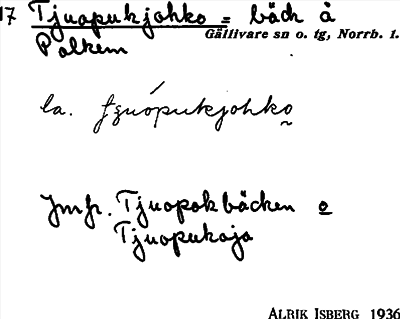 17 Tjuopukjohko = bäck å
Gällivare sn o. tg, Norrb. l.
Polkem
la. tʒuópukjohko̰
Jmfr. Tjuopokbäcken o
Tjuopukoja
ALRIK ISBERG 1936